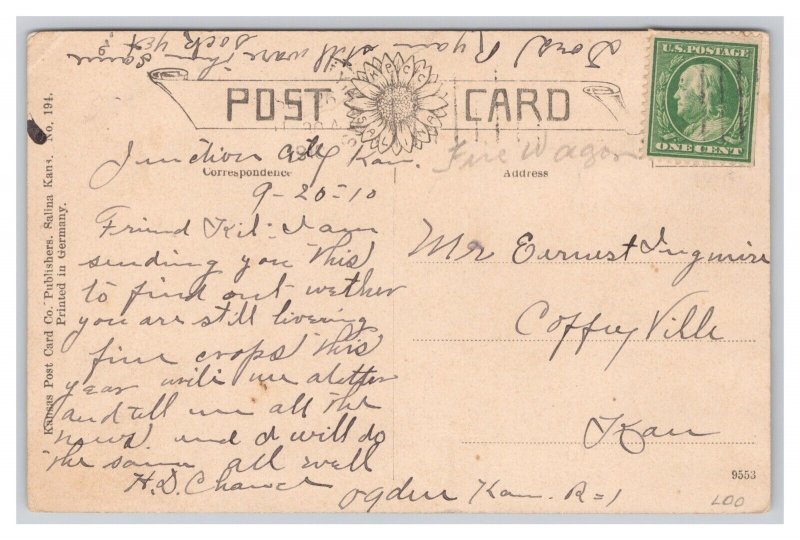 Does Ryan still ware them
sock yet
same
?
POST CARD
U.S. POSTAGE
ONE CENT
Junction City Kan.
Fine Wagon
Correspondence
Address
9-20=10
Friend Kil: I am
sending you this
to find out wether
you are still livering
fine crops this
year write me a letter
and tell me all the
news and I will do
the same all well
H.D.
Ogden Kan. R=1
Mr Eernest Ingmire
Coffey Ville
Kan
Kansas Post Card Co. Publishers. Salina Kans. No. 194.
Printed in Germany.
9553
LOO